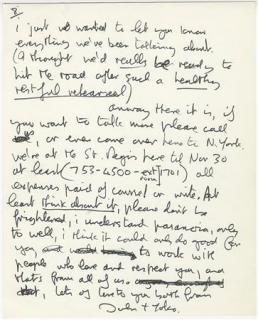 3.
i just wanted to let you know
everything we've been talking about.
(i thought we'd really be ready to
hit the road after such a healthy
restful rehearsal)
anyway Here it is, if
you want to talk more please call
us, or even come over here to N. York.
we're at the St. Regis here til Nov 30
at least (753-4500-ext/room 1701) all
expenses paid of course! or write. At
least think about it, please don't be
frightened, i understand paranoia, only
to well, i think it could only do good for
you, to work with
people who love and respect you, and
that's from all of us
lots of love to you both from
John + Yoko.